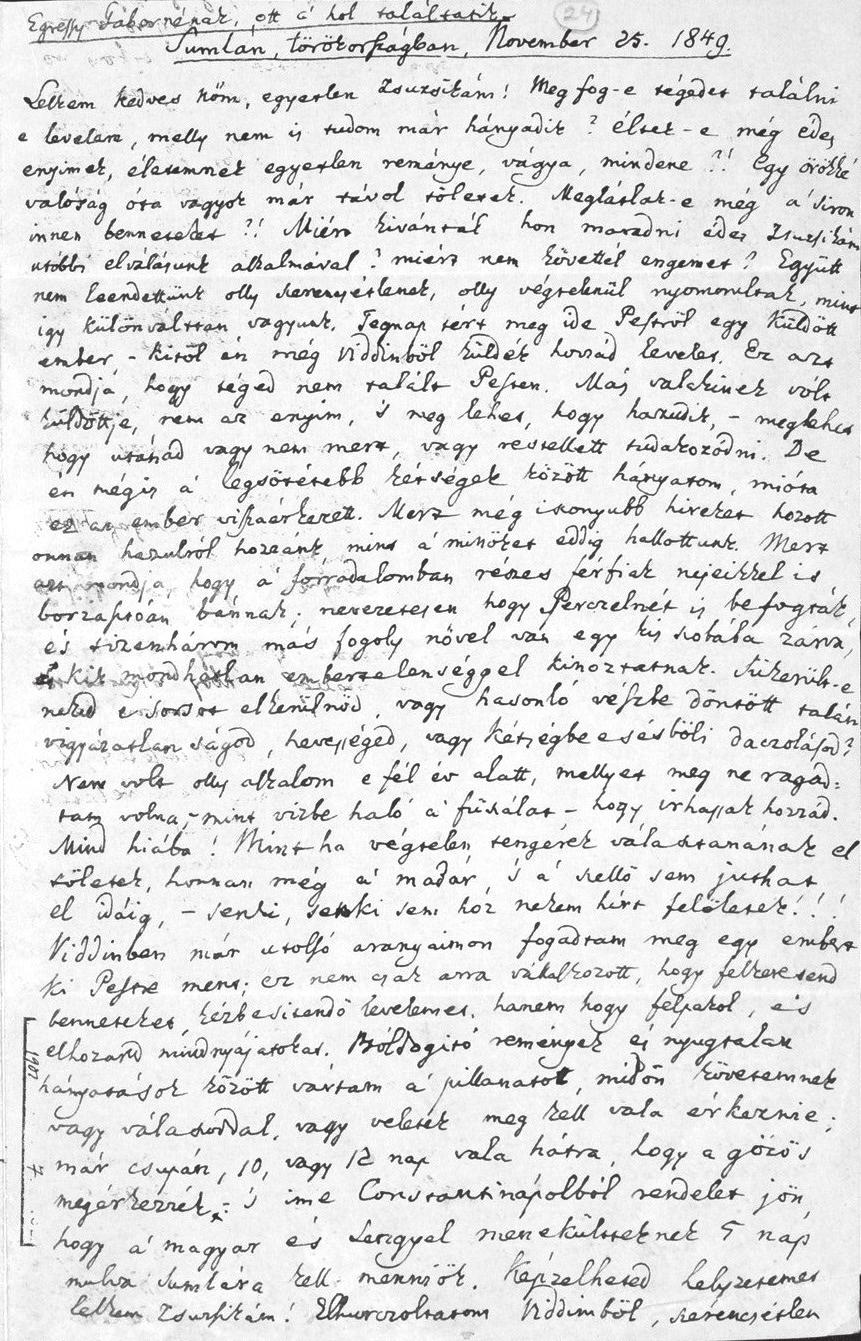 Egressy Gábornénak, ott a' hol találtatik.
24
Sumlán, törökországban, November 25. 1849.
Lelkem kedves nőm, egyetlen Zsuzsikám! Meg fog-e tégedet találni
e levelem, melly nem is tudom már hányadik? éltek-e még édes
enyimek, életemnek egyetlen reménye, vágya, mindene?! Egy örökké
valóság óta vagyok már távol tőletek. Meglátlak-e még a' síron
innen benneteket?! Miért kivántál hon maradni édes Zsuzsikám
utóbbi elválásunk alkalmával? miért nem követtél engemet? Együtt
nem leendettünk olly szerencsétlenek, olly végtelenül nyomorultak, mint
igy különváltan vagyunk. Tegnap tért meg ide Pestről egy küldött
ember, - kitől én még Viddinből küldék hozzád levelet. Ez azt
mondja, hogy téged nem talált Pesten. Más valakinek volt
küldöttje, nem az enyim, 's meg lehet, hogy hazudik, - meglehet
hogy utánad vagy nem mert, vagy restellett tudakozódni. De
én mégis a' legsötétebb kétségek között hányatom, mióta
ez az ember visszaérkezett. Mert még iszonyubb hireket hozott
onnan hazulról hozzánk, mint a' minőket eddig hallottunk. Mert
azt mondja, hogy a' forradalomban részes férfiak nejeikkel is
borzasztóan bánnak; nevezetesen hogy Perczelnét is befogták,
és tizenhárom más fogoly nővel van egy kis szobába zárva,
kik mondhatlan embertelenséggel kinoztatnak. Sikerült-e
neked e sorsot elkerülnöd, vagy hasonló vészbe döntött talán
vigyázatlanságod, hevességed, vagy kétségbeesésbőli daczolásod?
Nem volt olly alkalom e fél év alatt, mellyet meg ne ragad-
tam volna, - mint vizbe haló a' fűszálat - hogy irhassak hozzád.
Mind hiába! Mint ha végtelen tengerek választanának el
tőletek, honnan még a' madár 's a' szellő sem juthat
el idáig, - senki, senki sem hoz nekem hírt felőletek!!!
Viddinben már utolsó aranyaimon fogadtam meg egy embert
ki Pestre ment; ez nem csak arra vállalkozott, hogy felkeresend
benneteket, kézbesitendő levelemet, hanem hogy felpakol, és
elhozand mindnyájatokat. Bóldogitó remények és nyugtalan
hányatások között vártam a' pillanatot, midőn követemnek
vagy válaszoddal, vagy veletek meg kell vala érkeznie;
már csupán, 10, vagy 12 nap vala hátra, hogy a gőzös
megérkezzék; 's ime Constantinápolból rendelet jön,
hogy a' magyar és lengyel menekülteknek 5 nap
mulva Sumlára kell menniök. Képzelheted helyzetemet
lelkem Zsuzsikám! Elhurczoltatom Viddinből, szerencsétlen